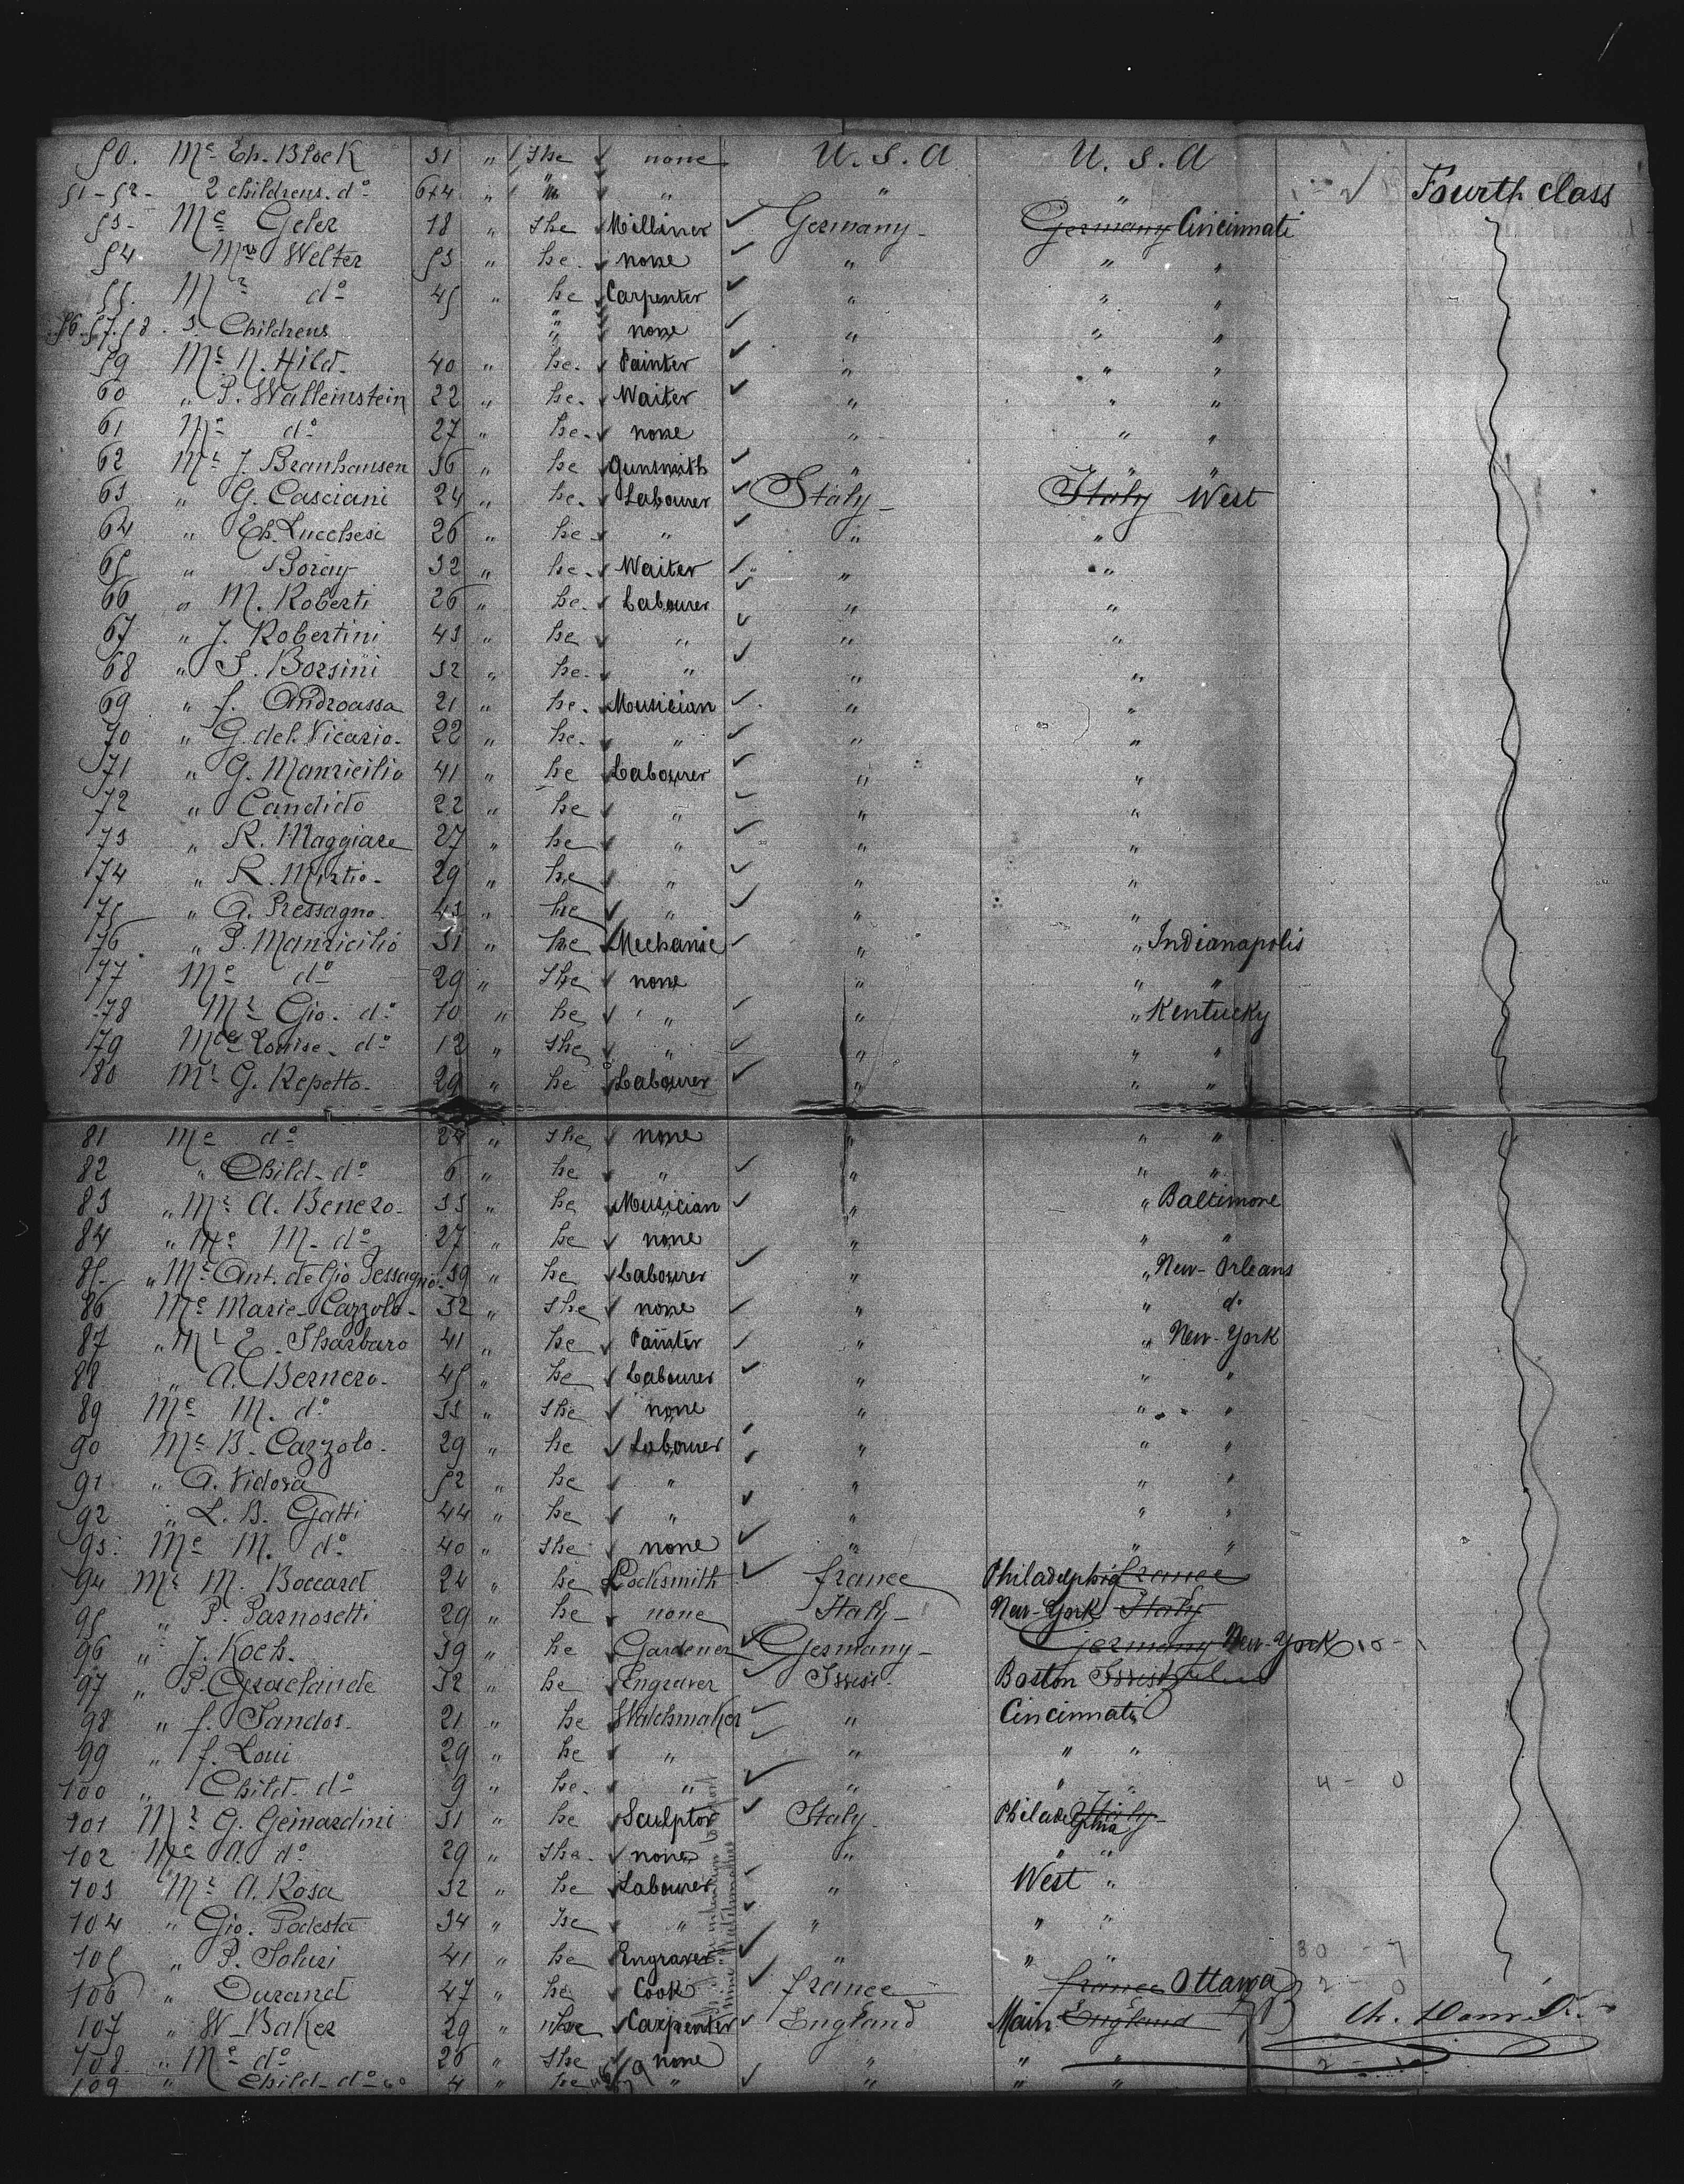 50. Me Eh. Block 31 " she none U.S.A U.S.A
Fourth class
51-52- 2 childrens. do 6+4 " " " " "
53- Me Geler 18 " she Milliner Germany- Germany Cincinnati
54 Mrs Welter 53 " he. none " " "
55. Mr do 45 " he Carpenter " " "
56.57.58. 3 Childrens " none " " "
59 Mr N. Hild- 40 " he. Painter " " "
60 " P. Walleinstein 22 " he. Waiter " " "
61 Me do 27 " he. none " " "
62 Mr J. Branhansen 36 " he Gunsmith " " "
63 " G. Casciani 24 " he. Labourer Italy- Italy West
64 " Eh. Lucchesi 26 " he " " "
65 " Boray 32 " he. Waiter " "
66 " M. Roberti 26 " he. Labourer " "
67 " J. Robertini 43 " he " " "
68 " S. Borsini 32 " he. " " "
69 " f. Androassa 21 " he. Musician " "
70 " G. del. Vicario- 22 " he. " " "
71 " G. Manricilio 41 " he Labourer " "
72 " Candido 22 " he " " "
73 " R. Maggiare 27 " he " " "
74 " R. Mirtio- 29 " he " " "
75 " A. Pressagno- 43 " he " " "
76 " P. Manricilio 31 " he Mechanic " " Indianapolis
77 Me do 29 " she none " " "
78 Mr Gio. do 10 " he " " " Kentucky
79 Mlle Louise- do 12 " she " " " "
80 Mr G. Repetto- 29 " he Labourer " " "
81 Me do 27 " she none " " "
82 " Child- do 6 " he " " " "
83 " Mr A. Benero- 33 " he Musician " " Baltimore
84 " Me M- do 27 " he none " " "
85- " Mr Ant. de Gio Pessagno- 39 " he Labourer " " New-Orleans
86 Me Marie-Cazzolo- 32 " she none " " do
87 " Mr E. Sharbaro 41 " he Painter " " New-York
88 " A. Bernero- 45 " he Labourer " " "
89 Me M. do 33 " she none " " "
90 Mr B- Cazzolo- 29 " he Labourer " " "
91 " A. Vidosa 52 " he " " " "
92 " L. B. Gatti 44 " he " " " "
93. Me M. do 40 " she none " " "
94 Mr M. Boccard 24 " he Locksmith france Philadelphia france
95 " P. Parnosetti 29 " he none Italy- New-York Italy
96 " J. Koch. 39 " he Gardener Germany- Germany New-York
97 " P. 32 " he Engraver Swiss- Boston
98 " f. Sandos- 21 " he Watchmaker " Cincinnati
99 " f. Loui 29 " he " " " "
100 " Child- do 9 " he. " " " " 4 - 0
101 Mr G. Geinardini 31 " he Sculptor Italy- Philadelphia Italy-
102 Me A. do 29 " sha- none " " "
103 Mr A. Rosa 32 " he Labourer " West "
104 " Gio. Podesta 34 " he " " " "
105 " P. Soluri 41 " he Engraver " " " 30 - 7
106 " Durand 47 " he Cook france france Ottawa 2 - 0
107 " W-Baker 29 " he Carpenter England Main England
108. " Me do 26 " she none " " "
109 " Child- do 4 " he " " " "